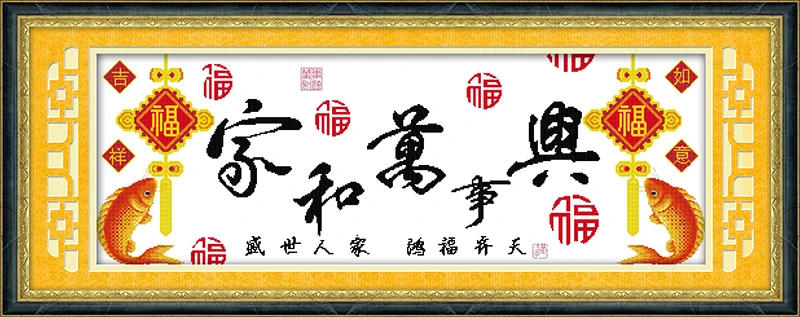 家和萬事興
盛世人家 鴻福齊天
吉祥
如意
福
福
福
福
福
福
福
福
福